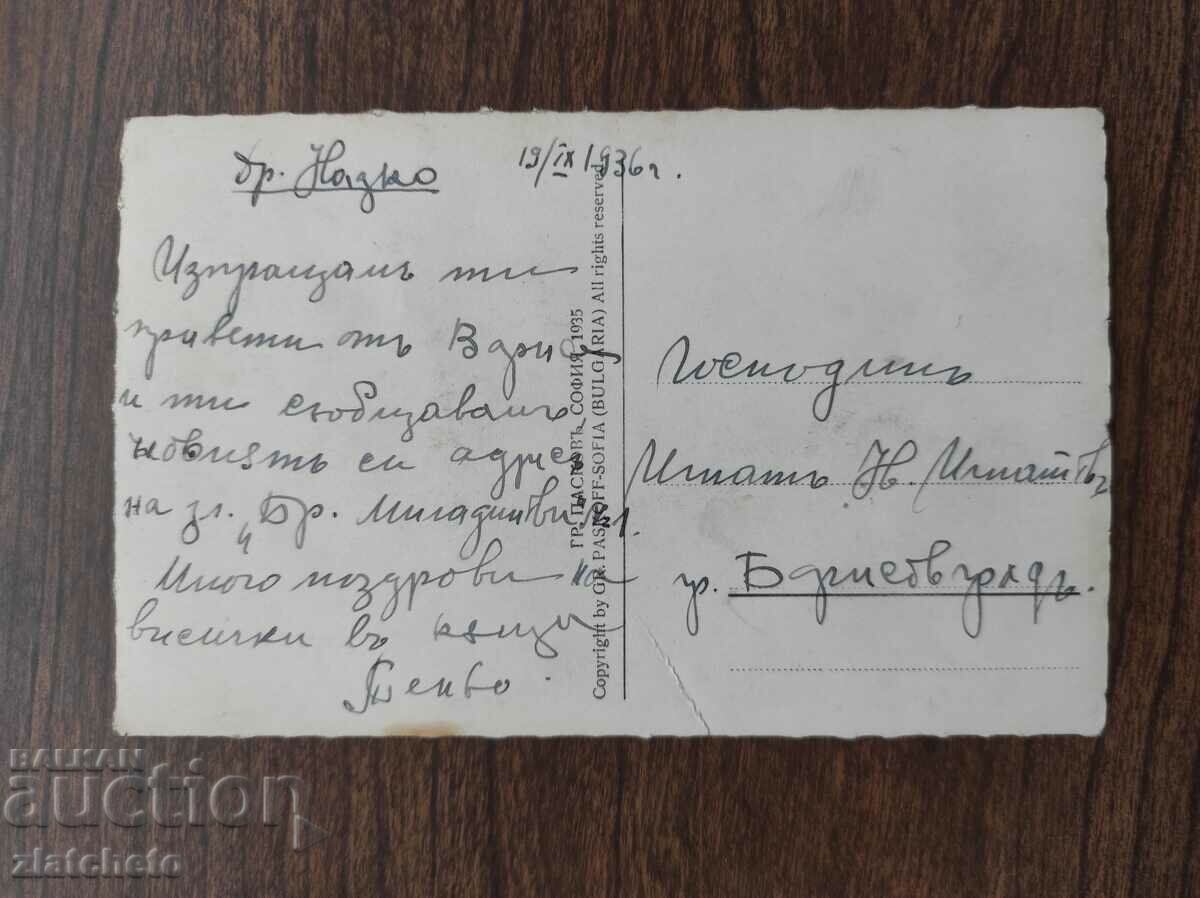 др. Надко
19/IX 1936 г.
Изпращамъ ти
привети отъ
и ти съобщавамъ
новиятъ си адрес
на ул. „Бр. Миладинови" №1.
Много поздрави на
всички въ
Пеньо.
ГР. ПАСКОВЪ, СОФИЯ, 1935
Copyright by GR. PASKOFF-SOFIA (BULGARIA) All rights reserved
Господинъ
Игнатъ Н. Игнатовъ
гр. Борисовградъ.
BALKAN
auction
zlatcheto